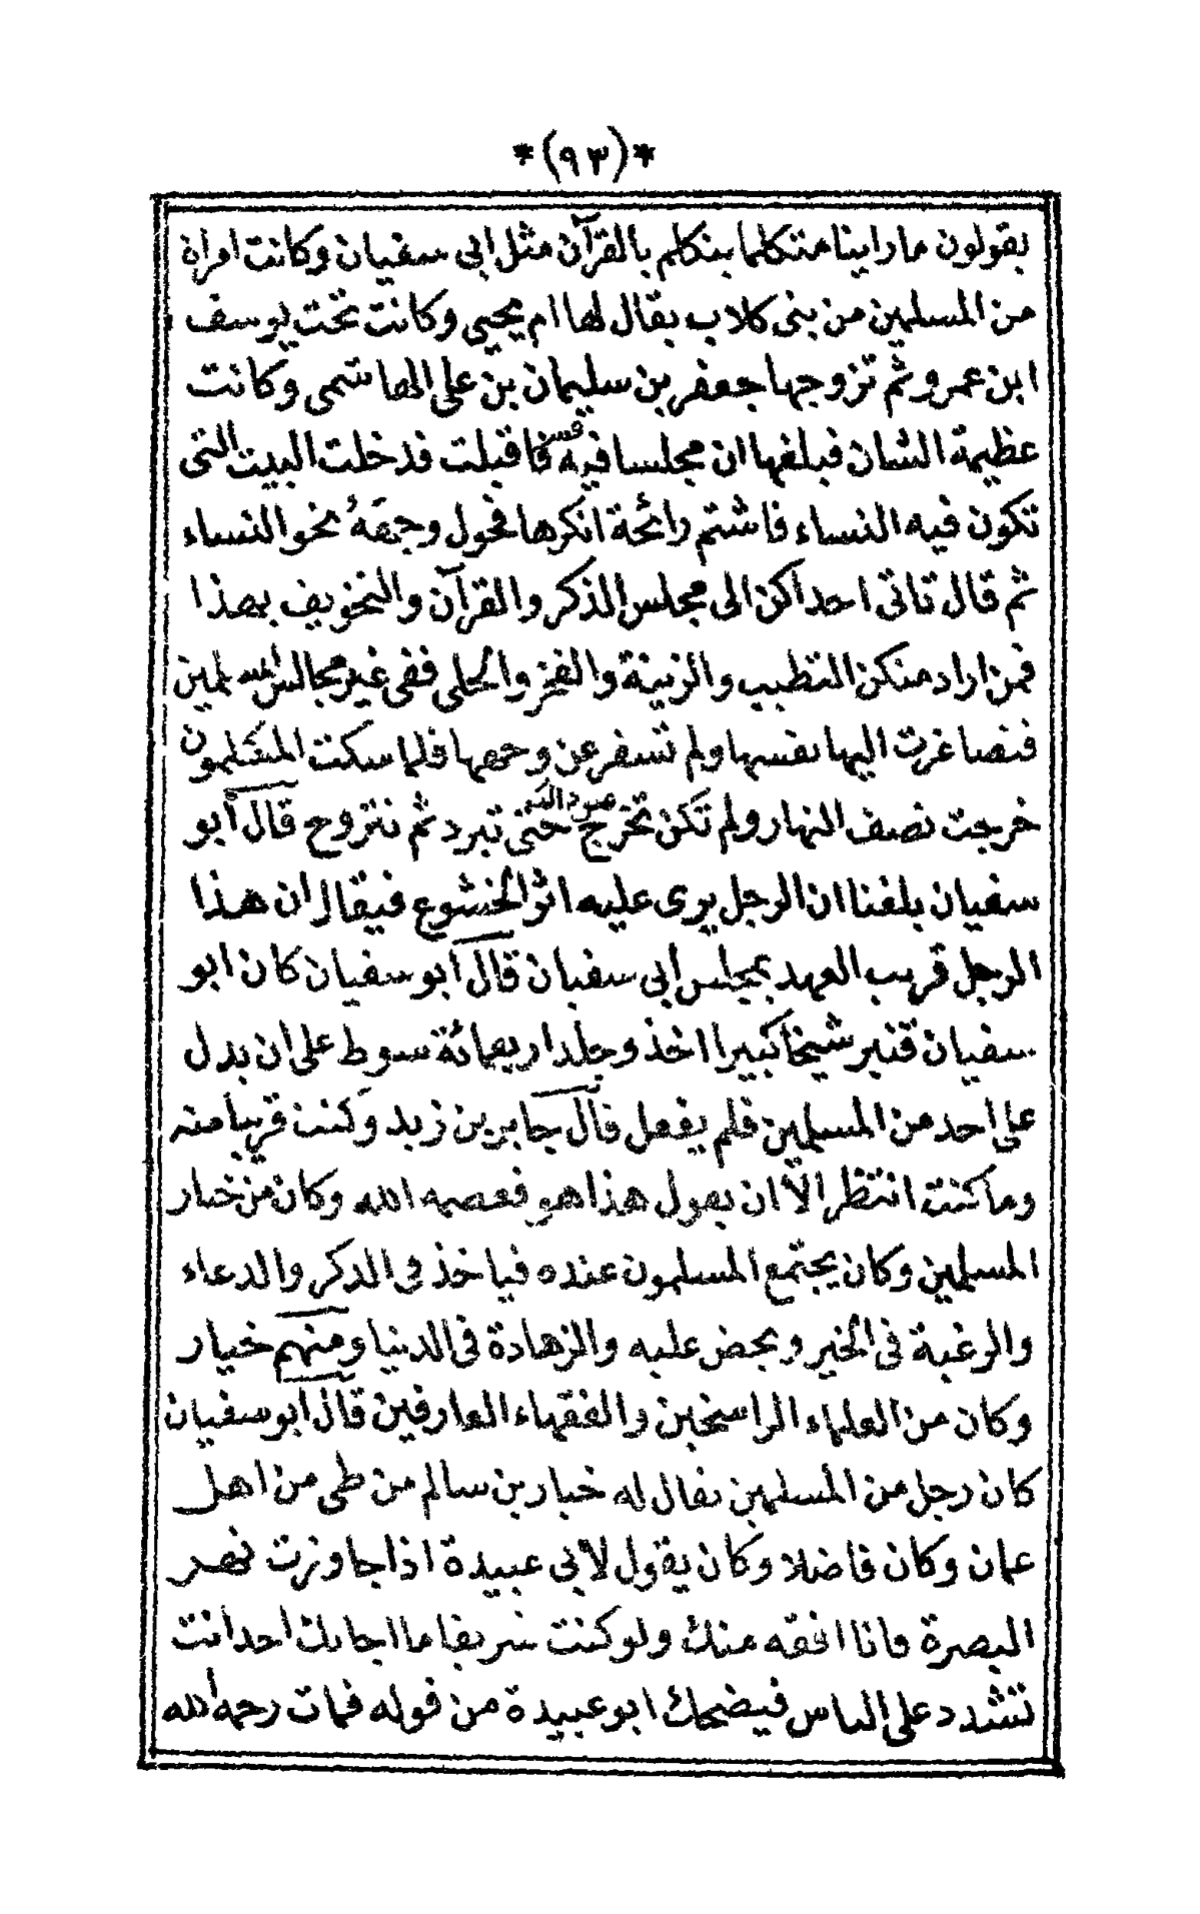 *(٩٣)*
يقولون ما راينا متكلما يتكلم بالقرآن مثل ابى سفيان وكانت امراة
من المسلمين من بنى كلاب يقال لها ام يحيى وكانت تحت يوسف
ابن عمرو ثم تزوجها جعفر بن سليمان بن على الهاشمى وكانت
عظيمة الشان فبلغها ان مجلسا فيه قنبر فاقبلت فدخلت البيت التى
تكون فيه النساء فاشتم رائحة انكرها فحول وجهَهُ نحو النساء
ثم قال تاتى احداكن الى مجلس الذكر والقرآن والتخويف بهذا
فمن اراد منكن التطيب والزينة والفخر والحلى ففى غير مجالس المسلمين
فتصاغرت اليها نفسها ولم تسفر عن وجهها فلما سكت المتكلمون
خرجت نصف النهار ولم تكن تخرج حتى تبرد ثم تتروح قال أبو
سفيان بلغنا ان الرجل يرى عليه اثر الخشوع فيقال ان هذا
الرجل قريب العهد بمجلس ابى سفيان قال ابو سفيان كان ابو
سفيان قنبر شيخا كبيرا اخذ وجلد اربعمائة سوط على ان يدل
على احد من المسلمين فلم يفعل قال جابر بن زيد وكنت قريبا منه
وما كنت انتظر الّا ان يقول هذا هو فعصمه الله وكان من خيار
المسلمين وكان يجتمع المسلمون عنده فياخذ فى الذكر والدعاء
والرغبة فى الخير ويحض عليه والزهادة فى الدنيا ومنهم خيار
وكان من العلماء الراسخين والفقهاء العارفين قال ابو سفيان
كان رجل من المسلمين يقال له خيار بن سالم من طى من اهل
عمان وكان فاضلا وكان يقول لابى عبيدة اذا جاوزت نهر
البصرة فانا افقه منك ولو كنت شريفا ما اجابك احد انت
تشدد على الناس فيضحك ابو عبيدة من قوله فمات رحمه الله